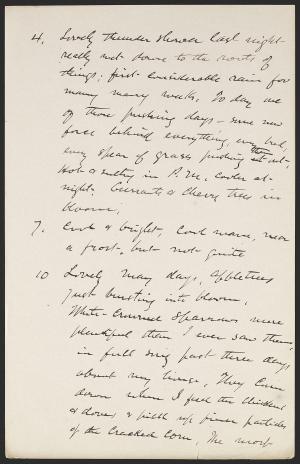 4. Lovely thunder shower last night
really wet down to the roots of
things; first considerable rain for
many many weeks. To day one
of those pushing days - some new
force behind everything, every bud,
every spear of grass pushing out,
Hot & sultry in P.M., cooler at
night. Currants & Cherry trees in
bloom;
7. Cool & bright, Cool mornings, near
a frost, but not quite
10 Lovely May days, appletrees
just bursting into bloom,
White-Crowned Sparrows more
plentiful than I ever saw them,
in full song past three days
about my house, They come
down when I feed the chickens
& doves & pick up finer particles
of the Cracked Corn, The most